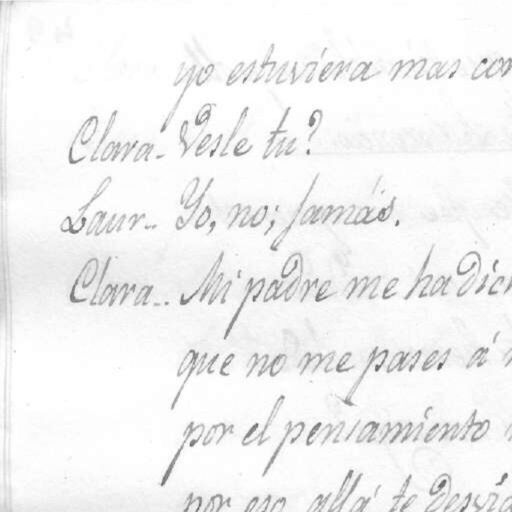 yo estuviera mas con
Clara - Vesle tu?
Laur - Yo, no; jamás.
Clara - Mi padre me ha dich
que no me pases á
por el pensamiento
por eso allá te desvia